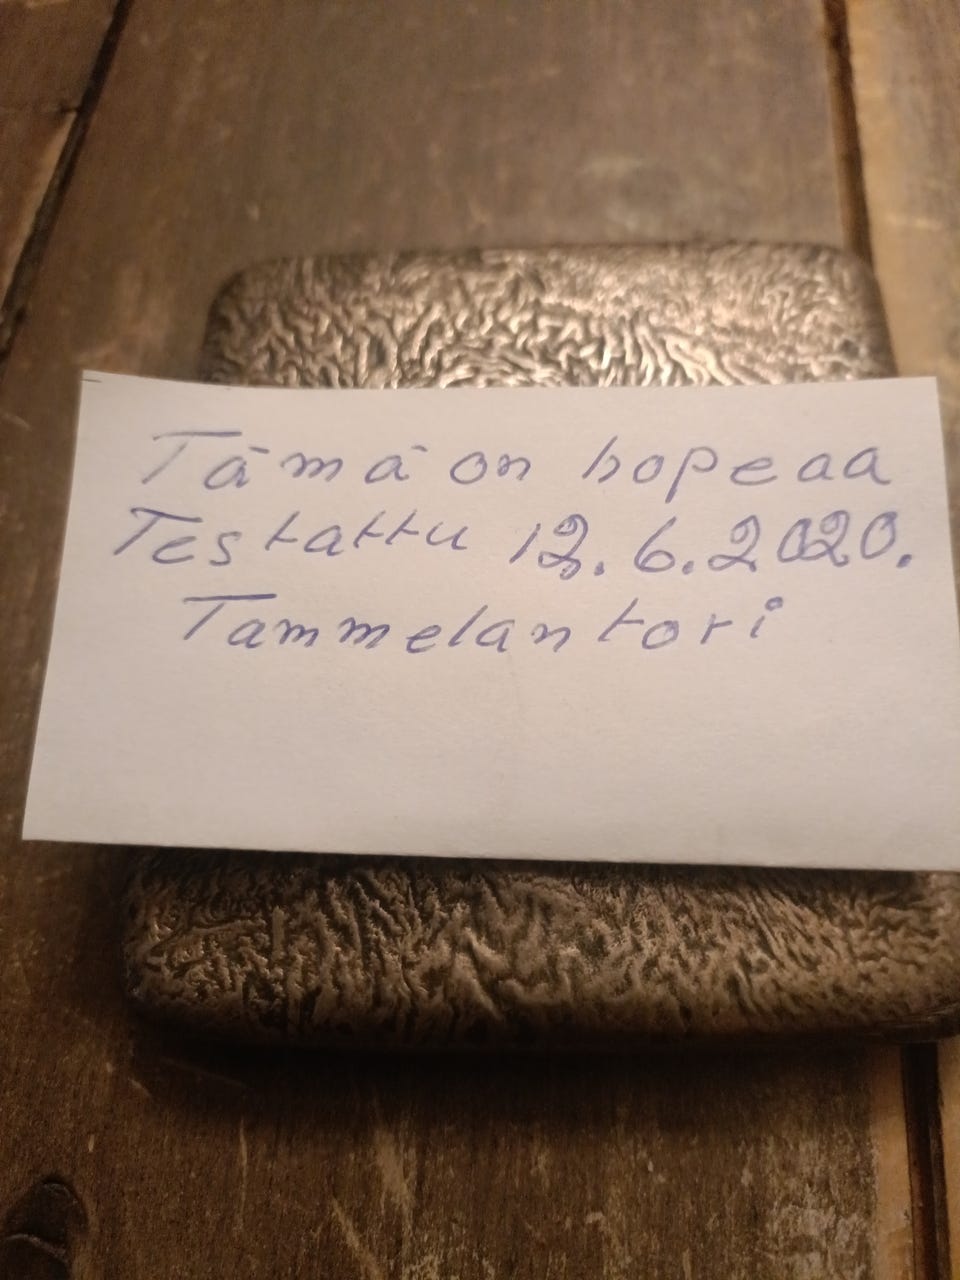 Tämä on hopeaa
Testattu 12.6.2020.
Tammelantori